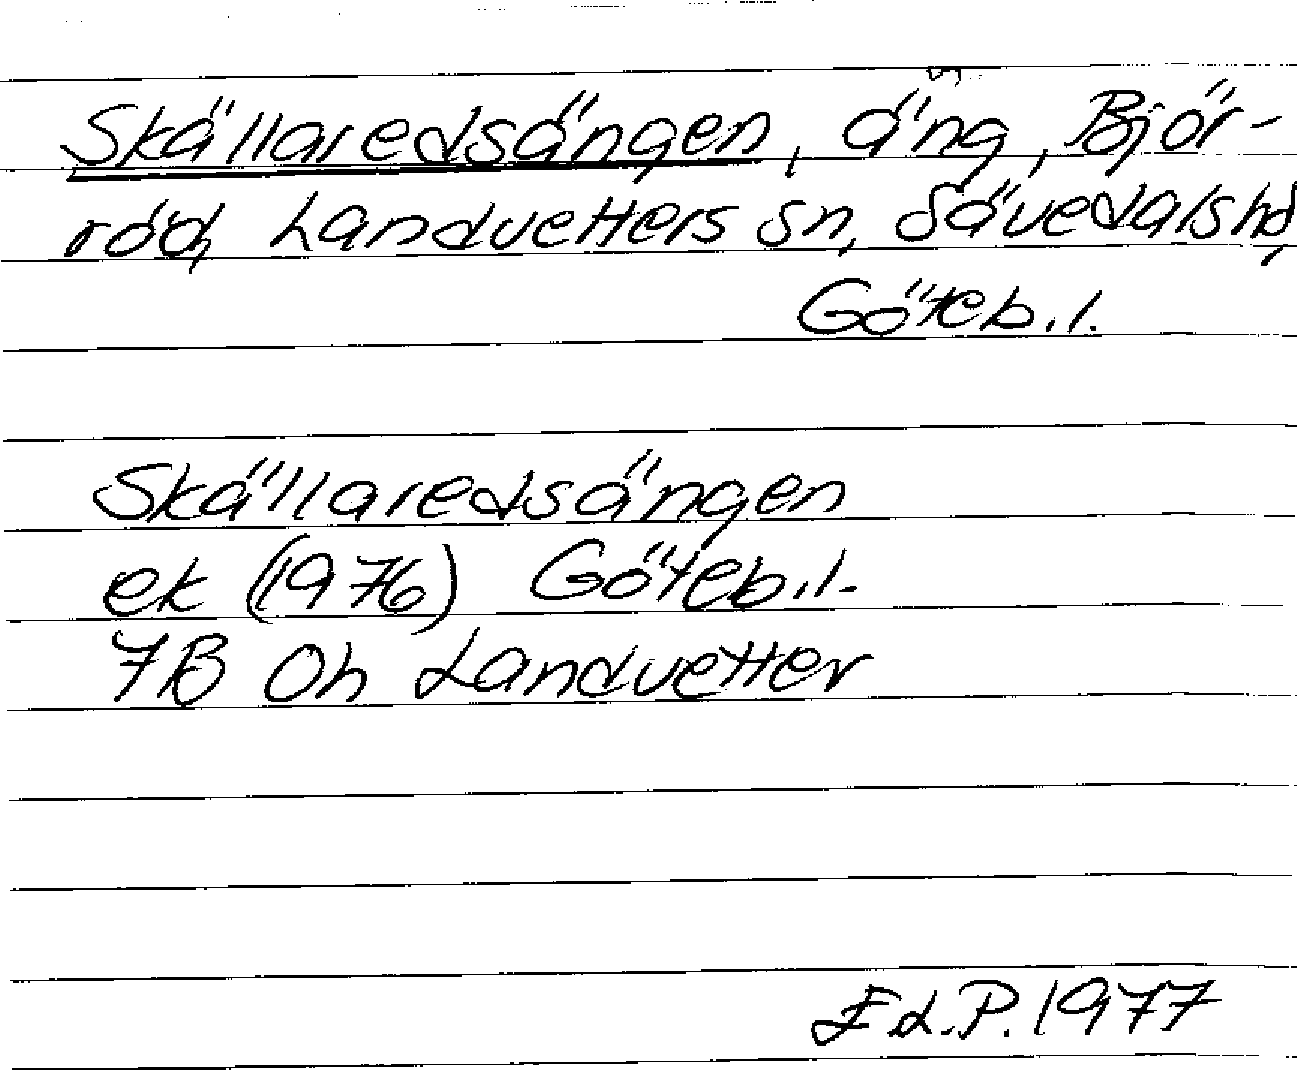 Skällaredsängen, äng, Björ-
röd, Landvetters sn, Sävedals hd,
Göteb.l.
Skällaredsängen
ek (1976) Göteb.l.
7B Oh Landvetter
Ed.P. 1977